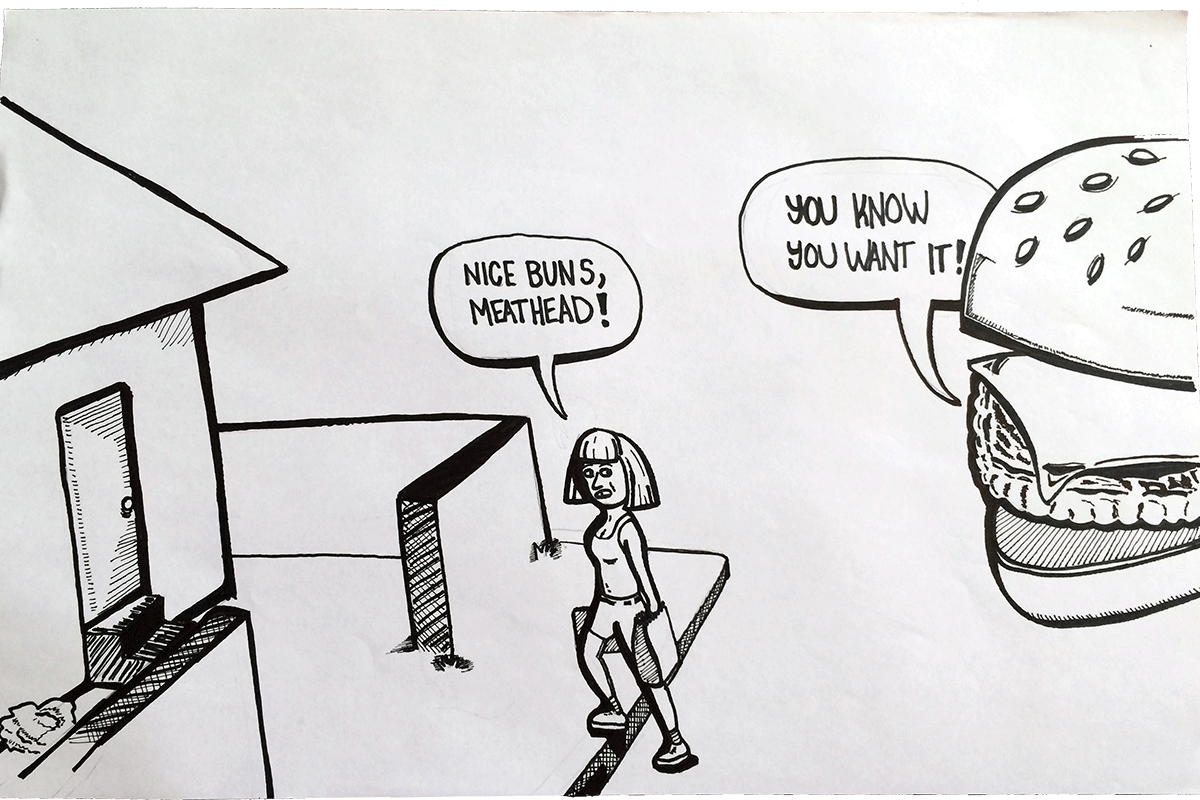 NICE BUNS,
MEATHEAD!
YOU KNOW
YOU WANT IT!